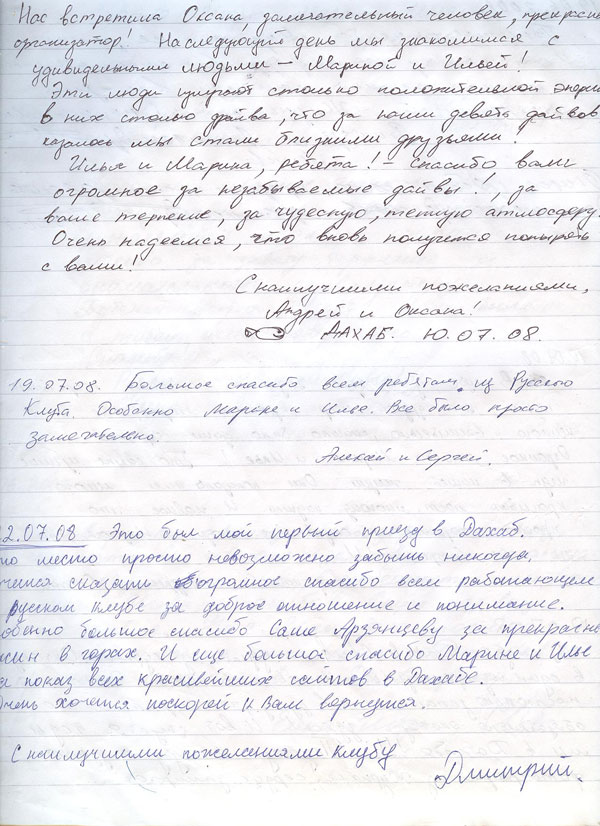 Нас встретила Оксана, замечательный человек, прекрасн
организатор! На следующий день мы знакомимся с
удивидельными людьми – Мариной и Ильёй!
Эти люди излучают столько положительной энерги
в них столько драйва, что за наши девять дайвов
казалось мы стали близкими друзьями!
Илья и Марина, ребята! – спасибо вам
огромное за незабываемые дайвы!, за
ваше терпение, за чудесную, теплую атмосферу.
Очень надеемся, что вновь получится понырять
с вами!
С наилучшими пожеланиями,
Андрей и Оксана!
ДАХАБ. 10.07.08.
19.07.08. Большое спасибо всем ребятам из Русского
Клуба. Особенно Марине и Илье. Все было просто
замечательно.
Алексей и Сергей.
2.07.08 Это был мой первый приезд в Дахаб.
то место просто невозможно забыть никогда.
чется сказать огромное спасибо всем работающем
русском клубе за доброе отношение и понимание.
обенно большое спасибо Саше Арзянцеву за прекрасны
жин в горах. И еще большое спасибо Марине и Илье
а показ всех красивейших сайтов в Дахабе.
чень хочется поскорей к Вам вернутся.
С наилучшими пожеланиями клубу
Дмитрий.